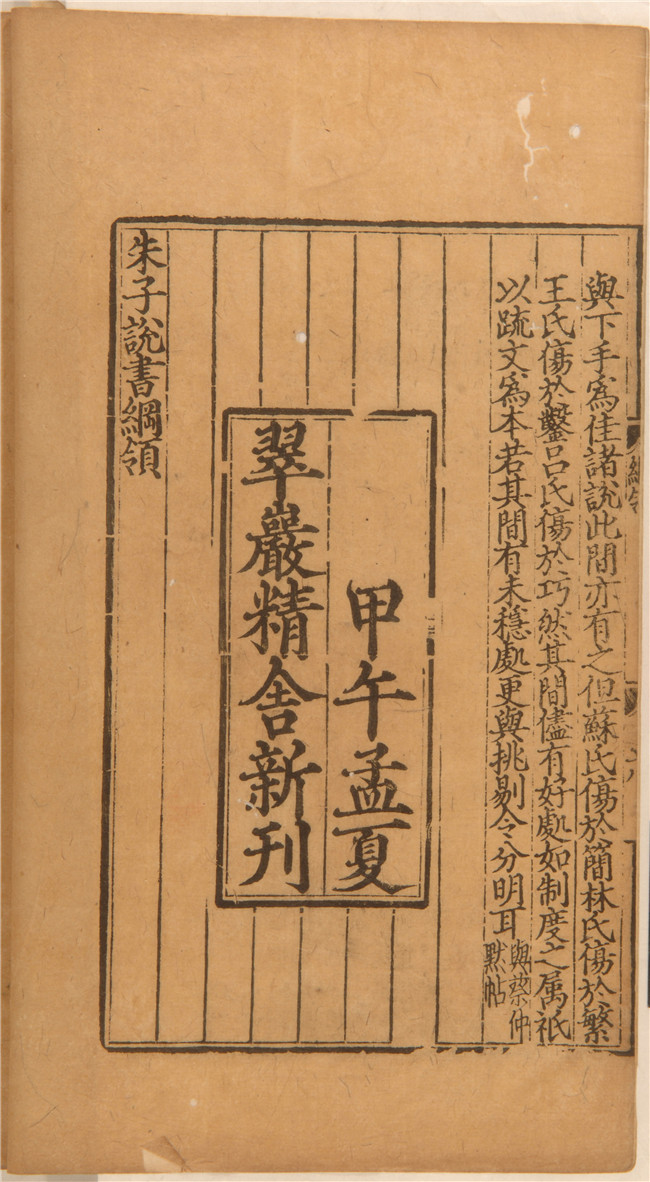 與下手爲佳諸說此間亦有之但蘇氏傷於簡林氏傷於繁
王氏傷於鑿吕氏傷於巧然其間儘有好處如制度之属祇
以疏文爲本若其間有未穩處更與挑剔令分明耳與蔡仲
默帖
甲午孟夏
翠巖精舎新刊
朱子說書綱領